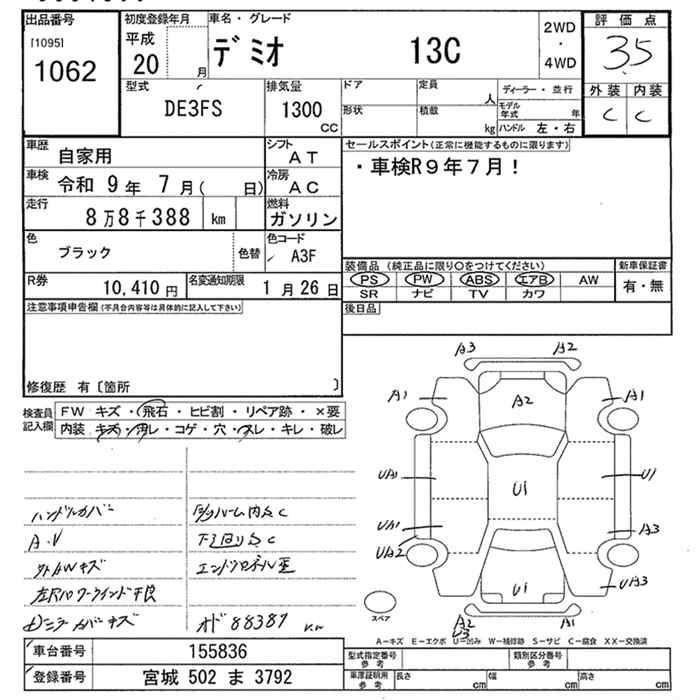 出品番号
[1095]
1062
初度登録年月
平成
20 月
車名・グレード
デミオ 13C
2WD
・
4WD
評価点
3.5
外装 内装
C C
型式
DE3FS
排気量
1300
cc
ドア
形状
定員
人
積載
kg
ディーラー・並行
モデル年式 年
ハンドル 左・右
車歴
自家用
シフト
AT
車検
令和 9年 7月( 日)
冷房
AC
走行
8万8千388 km
燃料
ガソリン
色
ブラック
色替
色コード
A3F
R券
10,410 円
名変通知期限
1月26日
セールスポイント(正常に機能するものに限ります)
・車検R9年7月!
装備品 (純正品に限り○をつけてください)
PS PW ABS エアB AW
SR ナビ TV カワ
新車保証書
有・無
後日品
注意事項申告欄(不具合内容等は具体的に記入して下さい)
修復歴 有〔箇所 〕
検査員
記入欄
FW キズ・飛石・ヒビ割・リペア跡・×要
内装 キズ・汚レ・コゲ・穴・スレ・キレ・破レ
ハンドルカバー
A.V
外AWキズ
左Rパワーウインド不良
内ニラカバーキズ
下廻りC
オド 88387 km
A3 A2
A1 A2 A1
UA1 U1 U1
UA1 A3
UA2
U1 UA3
A2 A1
U3
スペア
A-キズ E-エクボ U-凹み W-補修跡 S-サビ C-腐食 XX-交換済
車台番号
155836
登録番号
宮城 502 ま 3792
型式指定番号
参考
類別区分番号
参考
車庫証明用
参考
長さ cm
幅 cm
高さ cm